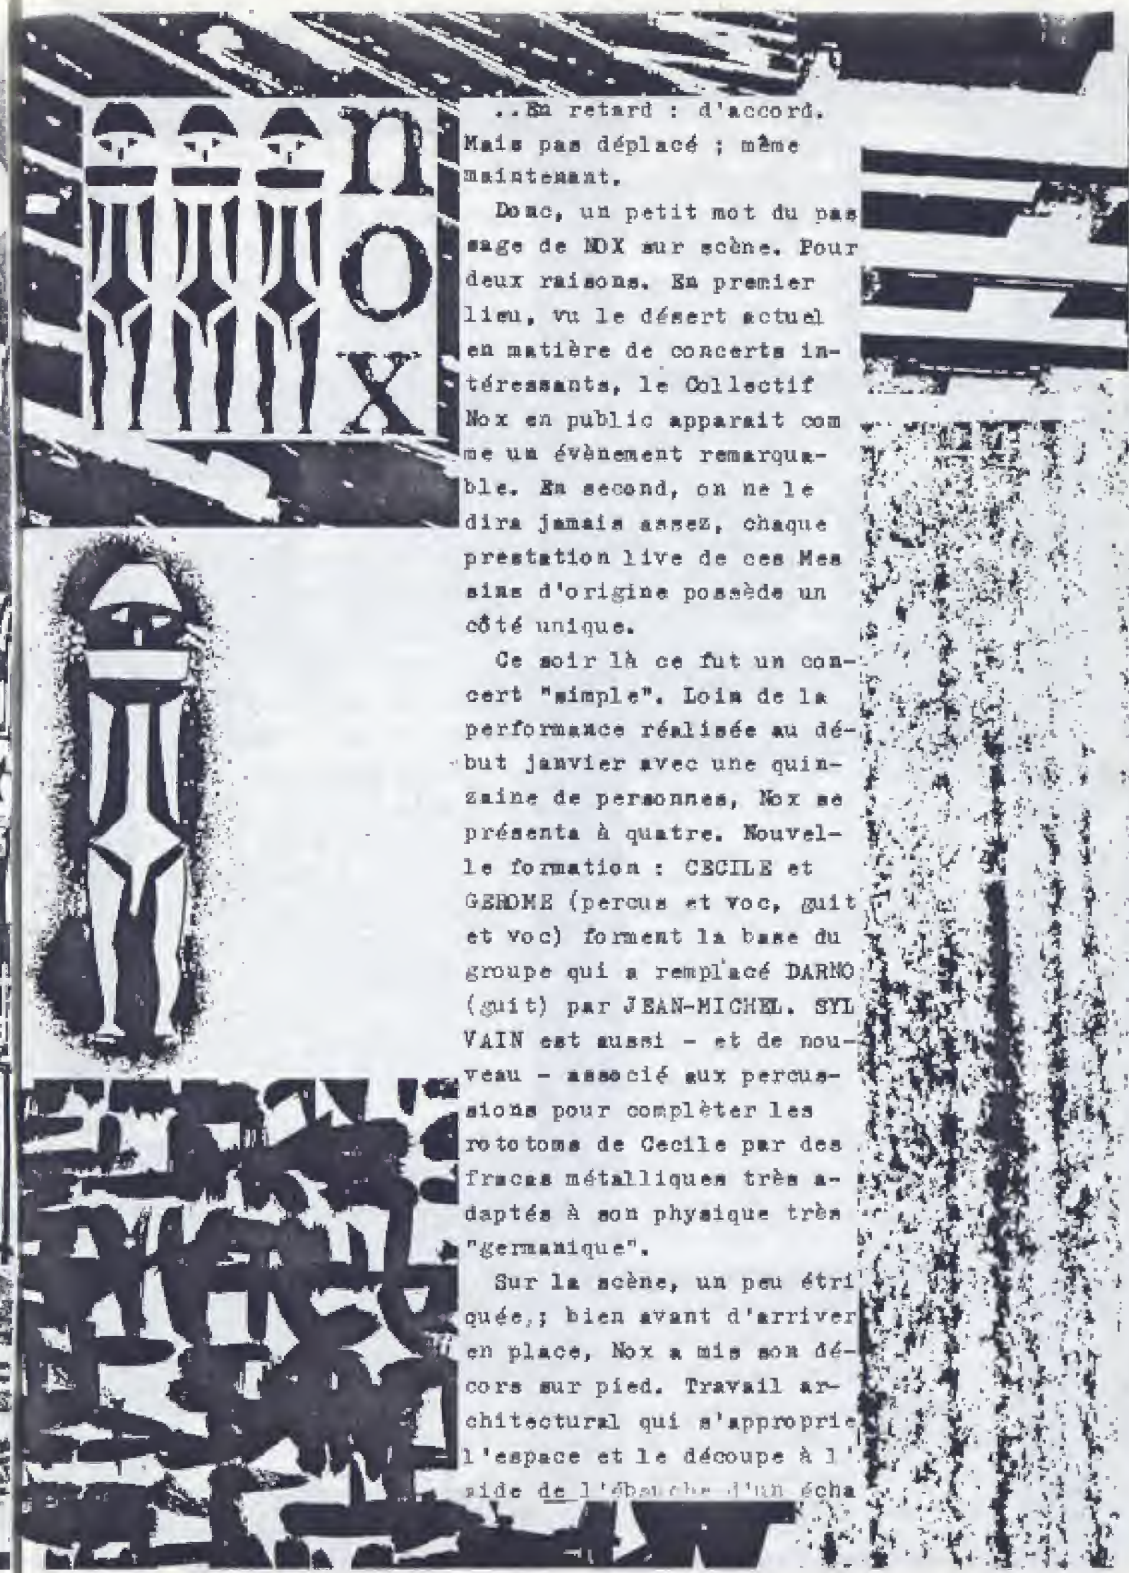 n
o
x
..En retard : d'accord.
Mais pas déplacé ; même
maintenant.
Donc, un petit mot du pas
sage de NOX sur scène. Pour
deux raisons. En premier
lieu, vu le désert actuel
en matière de concerts in-
téressants, le Collectif
Nox en public apparait com
me un évènement remarqua-
ble. En second, on ne le
dira jamais assez, chaque
prestation live de ces Mes
sins d'origine possède un
côté unique.
Ce soir là ce fut un con-
cert "simple". Loin de la
performance réalisée au dé-
but janvier avec une quin-
zaine de personnes, Nox se
présenta à quatre. Nouvel-
le formation : CECILE et
GEROME (percus et voc, guit
et voc) forment la base du
groupe qui a remplacé DARNO
(guit) par JEAN-MICHEL. SYL
VAIN est aussi - et de nou-
veau - associé aux percus-
sions pour complèter les
rototoms de Cecile par des
fracas métalliques très a-
daptés à son physique très
"germanique".
Sur la scène, un peu étri
quée,; bien avant d'arriver
en place, Nox a mis son dé-
cors sur pied. Travail ar-
chitectural qui s'approprie
l'espace et le découpe à l'
aide de l'ébauche d'un écha